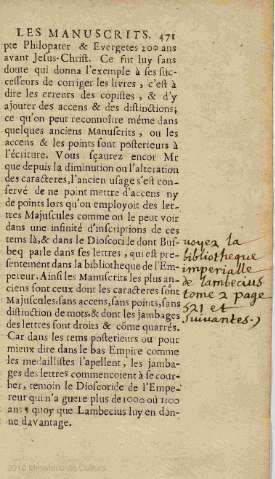 LES MANUSCRITS. 471
pte Philopater & Evergetes 200 ans
avant Jesus-Christ. Ce fut luy sans
doute qui donna l'exemple à ses suc-
cesseurs de corriger les livres, c'est à
dire les erreurs des copistes, & d'y
ajouter des accens & des distinctions;
ce qu'on peut reconnoître même dans
quelques anciens Manuscrits, où les
accens & les points sont posterieurs à
l'écriture. Vous sçaurez encor Mr
que depuis la diminution ou l'alteration
des caracteres, l'ancien usage s'est con-
servé de ne point mettre d'accens ny
de points lors qu'on employoit des let-
tres Majuscules comme on le peut voir
dans une infinité d'inscriptions de ces
tems là, & dans le Dioscoride dont Bus-
beq parle dans ses lettres, qui est pre-
sentement dans la bibliotheque de l'Em-
pereur. Ainsi les Manuscrits les plus an-
ciens sont ceux dont les caracteres sont
Majuscules, sans accens, sans points, sans
distinction de mots, & dont les jambages
des lettres sont droits & côme quarrés.
Car dans les tems posterieurs ou pour
mieux dire dans le bas Empire comme
les medaillistes l'apellent, les jamba-
ges des lettres commencoient à se cour-
ber, temoin le Dioscoride de l'Empe-
reur qui n'a guere plus de 1000 où 1100
ans, quoy que Lambecius luy en don-
ne davantage.
voyez la
bibliotheque
imperialle
de lambecius
tome 2 page
521 et
suivantes.
2010 Ministerio de Cultura